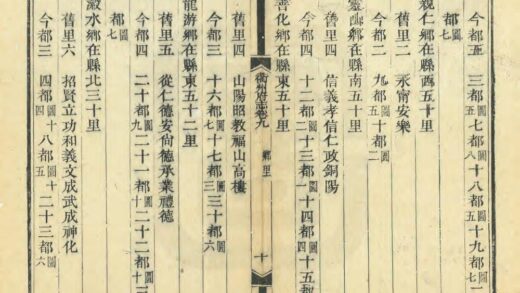 今都五 三都圖五七都圖八十八都圖五十九都圖七
都圖七
親仁鄉在縣西五十里
舊里二 永甯安樂
今都二 九都圖五十都圖二
靈山鄉在縣南五十里
舊里四 信義孝信仁政銅陽
今都四 十二都圖二十三都圖一十四都圖四十五都
善化鄉在縣東五十里
衢州府志卷九 鄉里 十
舊里四 山陽昭教福山高樓
今都三 十六都圖七十七都圖三三十都圖六
龍游鄉在縣東五十二里
舊里五 從仁德安尚德承業禮德
今都四 二十都圖九二十一都圖十二十二都圖十
都圖七
瀫水鄉在縣北三十里
舊里六 招賢立功和義文成武成神化
今都三 四都圖十四八都圖十五二十三都圖六